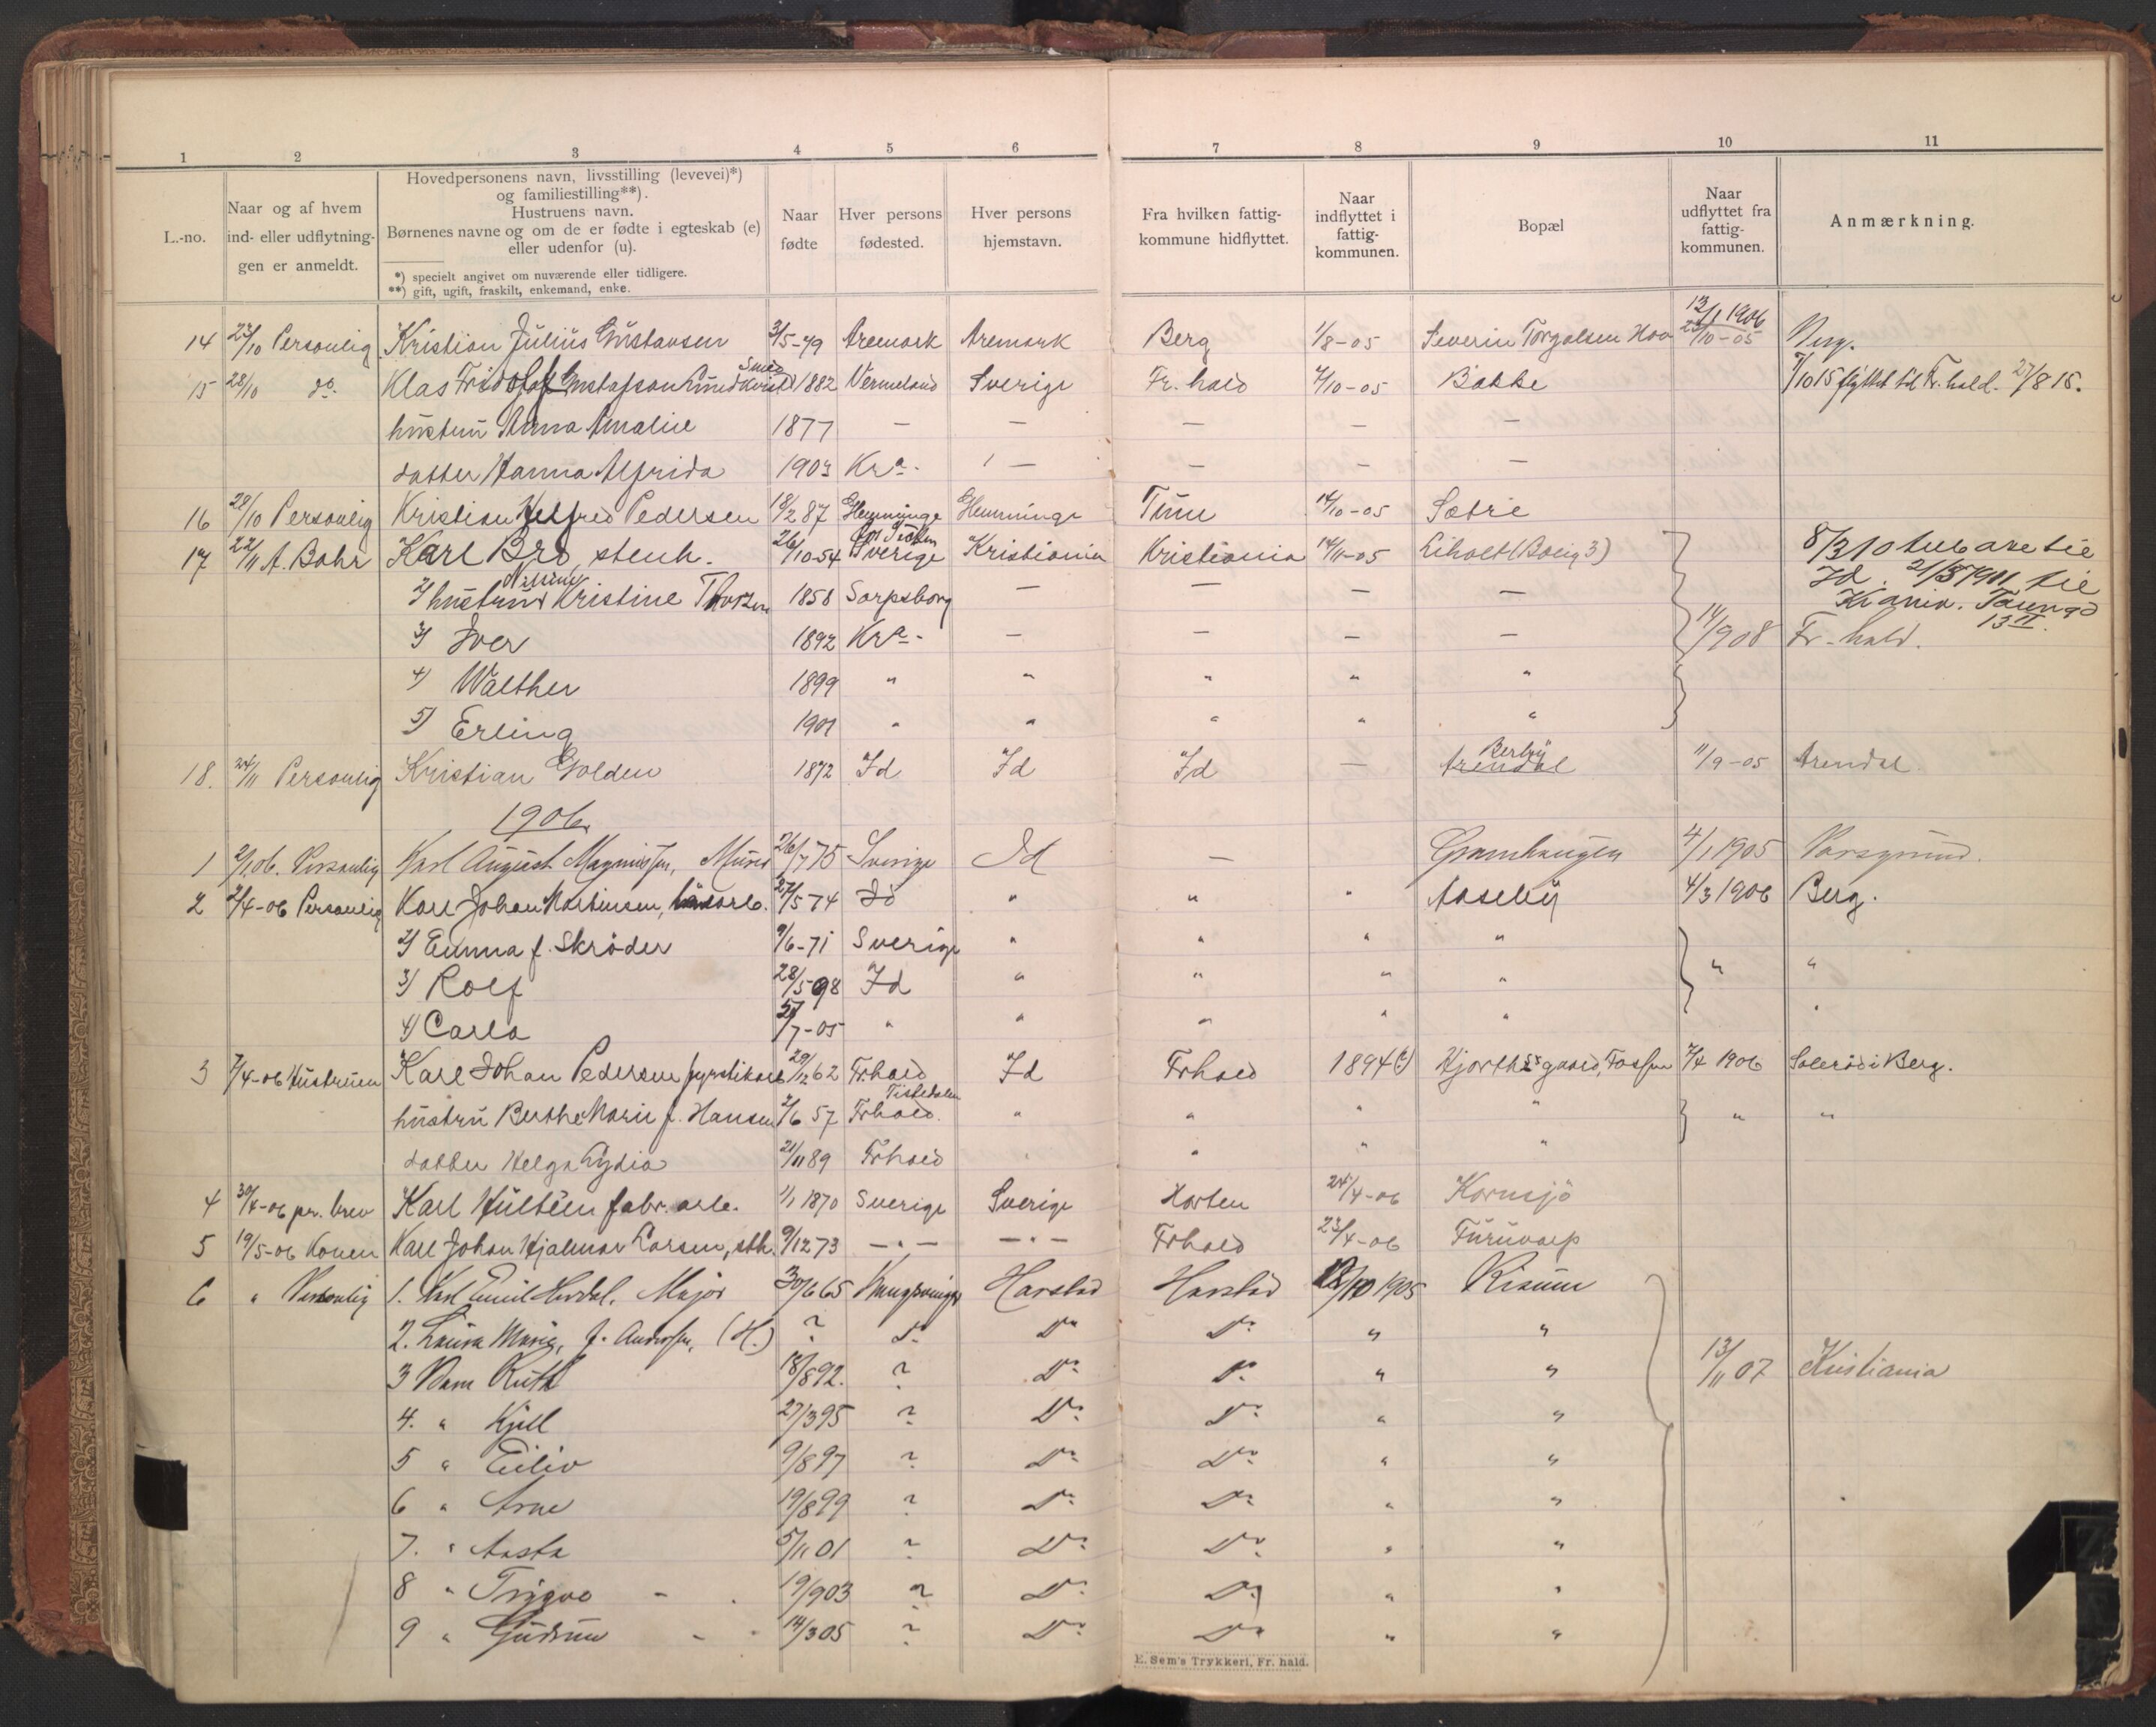 1 2 3 4 5 6 7 8 9 10 11
L.-no.
Naar og af hvem
ind- eller udflytning-
gen er anmeldt.
Hovedpersonens navn, livsstilling (levevei)*)
og familiestilling**).
Hustruens navn.
Børnenes navne og om de er fødte i egteskab (e)
eller udenfor (u).
*) specielt angivet om nuværende eller tidligere.
**) gift, ugift, fraskilt, enkemand, enke.
Naar
fødte
Hver persons
fødested.
Hver persons
hjemstavn.
Fra hvilken fattig-
kommune hidflyttet.
Naar
indflyttet i
fattig-
kommunen.
Bopæl
Naar
udflyttet fra
fattig-
kommunen.
Anmærkning.
14 23/10 Personlig Kristian Julius Gustavsen 3/5-49 Aremark Aremark Berg 1/8-05 Severin Torgalsen 1906 23/10-05
15 28/10 do. Klas Fridolf Gustafson Lundkvist Smed 1882 Vermland Sverige Fr.hald 4/10-05 Bakke flyttet til Fr.hald. 27/8 15.
hustru Anna Amalie 1877 — — — — —
datter Hanna Alfrida 1903 Kra. — — — —
16 28/10 Personlig Kristian Helfred Pedersen 18/2 87 Hemminge Hemminge Tune 14/10-05 Sætre
17 22/11 A. Bohr Karl Bro, stenh. 26/10-54 Sverige Kristiania Kristiania 14/11-05 Liholt (Bolig 3) 8/3 10 tilbake til
Id. 1911 til
2) hustru Nilsine Kristine Thorsen 1858 Sorpsborg — — — — Kania.
3) Iver 1892 Kra. — — — — 14/9 08 Fr-hald.
4) Walther 1899 " " " " "
5) Erling 1901 " " " " "
18. 24/11 Personlig Kristian Golden 1872 Id Id Id — Berby Arendal 11/9-05 Arendal
1906
1 2/1 06. Personlig Karl August Magnussen, Murer 26/7 75 Sverige Id — Grønhaugen 4/1 1905 Porsgrund.
2 2/4-06 Personlig Karl Johan Martinsen, 27/5 74 Id " " " Aaseby 4/3 1906 Berg.
2) Emma f. Skrøder 9/6-71 Sverige " " " "
3) Rolf 28/5 98 Id " " " " " "
4) Carla /7-05 " " " " " "
3 7/4-06 Hustruen Karl Johan Pedersen fyrstikarb 29/12 62 Fr.hald Id Frhald 1894(?) Hjorthsgaard, Fossen 7/4 1906 Solerød i Berg.
hustru Berthe Marie f. Hansen 2/6 57 Tistedalen Frhald. " " " " " "
datter Helga Lydia 21/11 89 Frhald " " " "
4 30/4-06 pr. brev Karl Hultén fabr. arb. 1/1 1870 Sverige Sverige Horten 24/4-06 Kornsjø
5 19/5-06 Konen Karl Johan Hjalmar Larsen, sth. 9/12 73 —"— —"— Frhald 23/4-06 Furuvarp
6 " Personlig 1. Karl Emil Hvidel. Major 30/6 65 Kongsvinger Harstad Harstad /10 1905 Risum
2. Laura Marie, f. Andersen, (H.) ? Do Do Do " "
3 Barn Ruth 18/8 92. ? Do Do " " 13/11 07 Kristiania
4. " Kjell 27/3 95 ? Do Do " "
5 " Eiliv 9/8 97 ? Do Do " "
6 " Arne 19/8 99 ? Do Do " "
7. " Aasta 5/11 01 ? Do Do " "
8 " Trygve 19/9 03 ? Do Do " "
9 " Gudrun 14/3 05 ? Do Do " "
E. Sem's Trykkeri, Fr. hald.